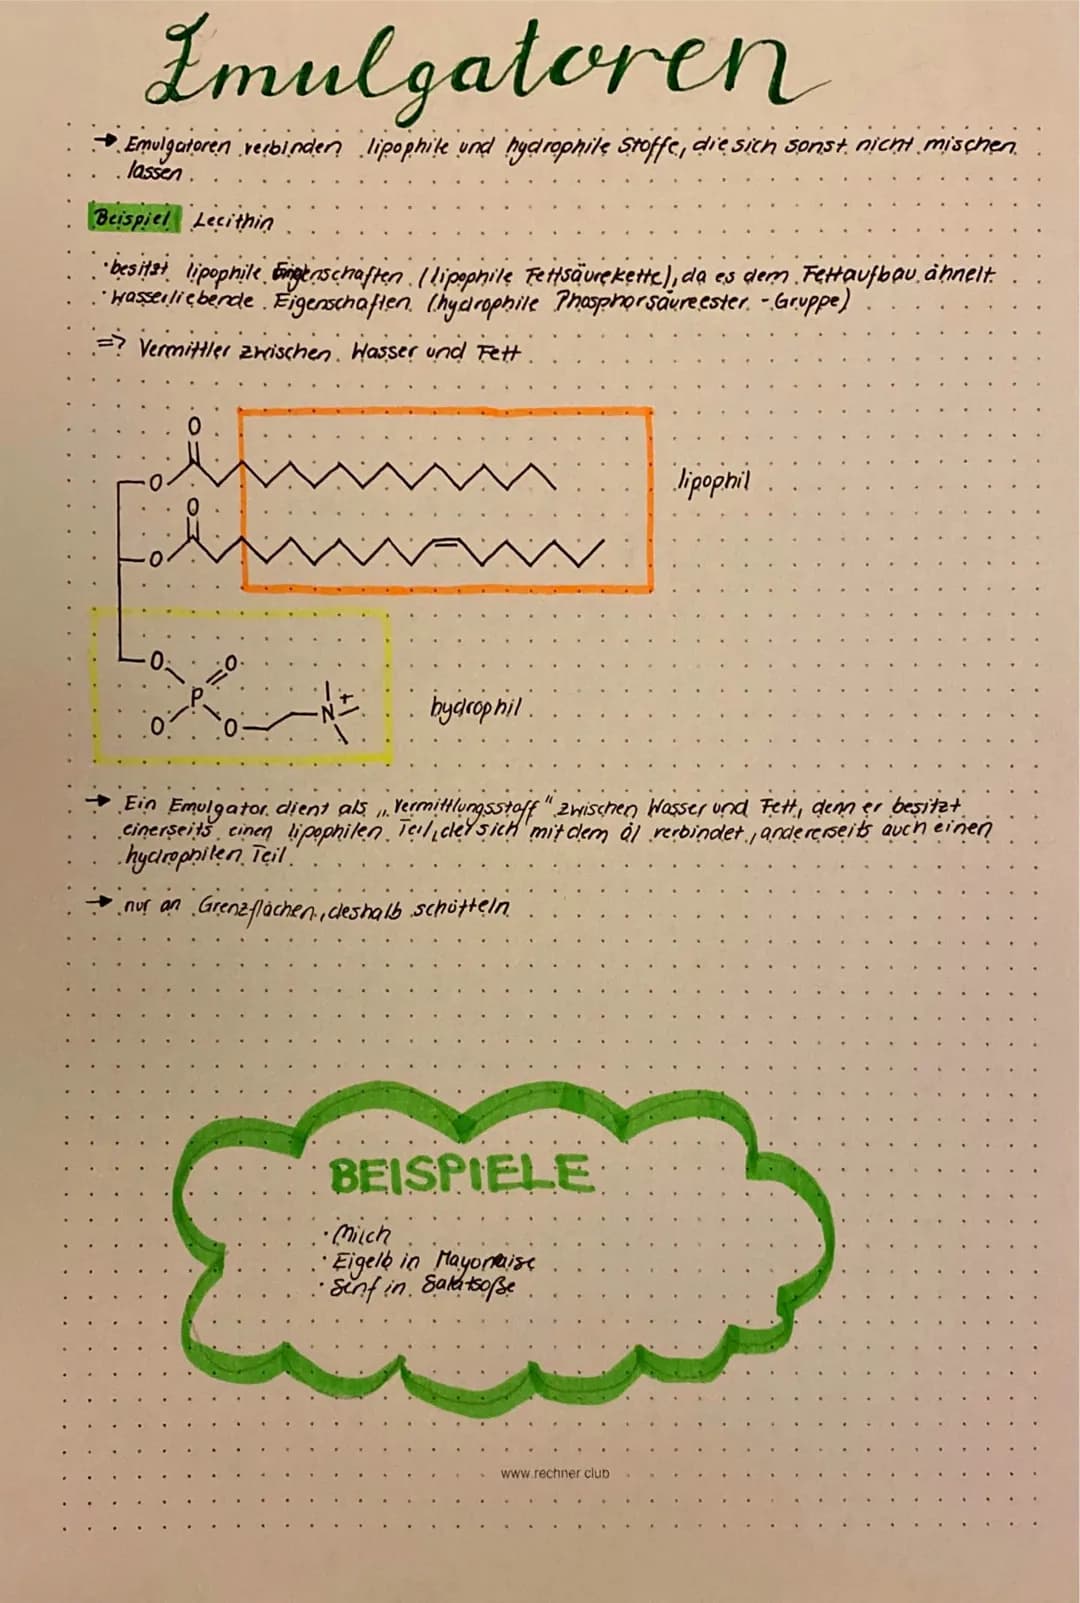 Emulgatoren
→ Emulgatoren verbinden lipophile und hydrophile Stoffe, die sich sonst nicht mischen
lassen.
Beispiel Lecithin
· besitzt lipophile Eigenschaften (lipophile Fettsäurekette), da es dem Fettaufbau ähnelt
· Wasserliebende Eigenschaften (hydrophile Phosphorsäureester-Gruppe)
=> Vermittler zwischen Wasser und Fett
O
O
lipophil
O
O
O
O
P
O
O
N+
hydrophil
→ Ein Emulgator dient als „Vermittlungsstoff" zwischen Wasser und Fett, denn er besitzt
einerseits einen lipophilen Teil, der sich mit dem öl verbindet, andererseits auch einen
hydrophilen Teil.
→ nur an Grenzflächen, deshalb schütteln
BEISPIELE
· Milch
· Eigelb in Mayonaise
· Senf in Salatsoße
www.rechner.club